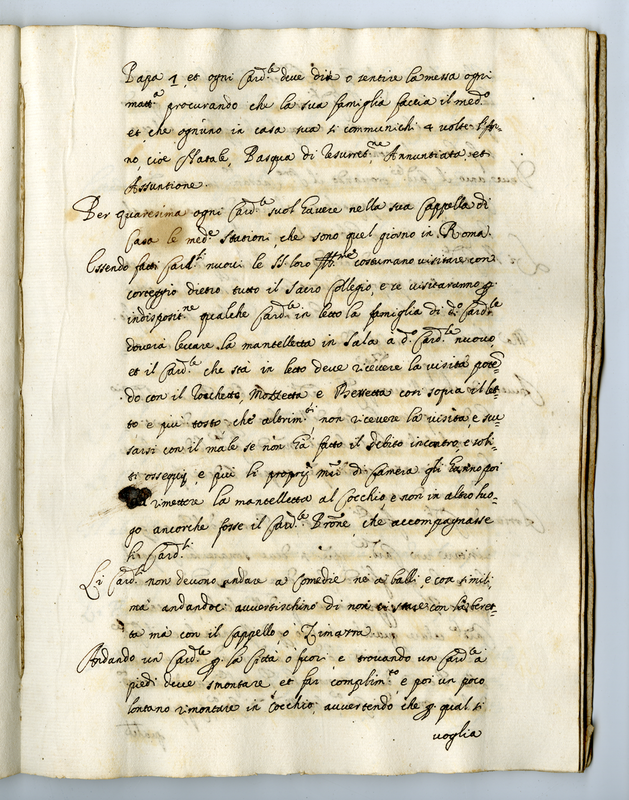 Papa 1, et ogni Card.le deve dire o sentire la messa ogni
matt.a procurando che la sua famiglia faccia il med.o
et che ogn'uno in casa sua si communichi 4 volte l'an-
no, cioè Natale, Pasqua di Resurret.ne Annuntiata, et
Assuntione.
Per quaresima ogni Card.le suol havere nella sua Cappella di
Casa le med.e stationi, che sono quel giorno in Roma.
Essendo fatti Card.li nuovi le SS. loro Ill.me costumano visitare con
corteggio dietro tutto il Sacro Collegio, e se visitaranno p
indisposit.ne qualche Card.le in letto la famiglia di d.o Card.le
doverà levare la mantelletta in sala a d.o Card.le nuovo,
et il Card.le che stà in letto deve ricevere la visita poten-
do con il Rocchetto Mozzetta e Berretta con sopra il let-
to e più tosto che altrim.ti non ricevere la visita, e scu-
sarsi con il male se non hà fatto il debito incontro, e soli-
ti ossequij, e più li proprij mri di Camera gli hanno poi
rimettere la mantelletta al Cocchio, e non in altro luo-
go ancorche fosse il Card.le Prone, che accompagnasse
li Card.li
Li Card.li non devono andare a Comedie ne a balli, e cose simili,
ma andandoci avvertischino di non vi stare con la beret-
ta mà con il Cappello, o Zimarra.
Andando un Card.le p la Città o fuori, e trovando un Card.le à
piedi deve smontare et far complim.to, e poi un poco
lontano rimontare in Cocchio, avvertendo che p qual si
voglia